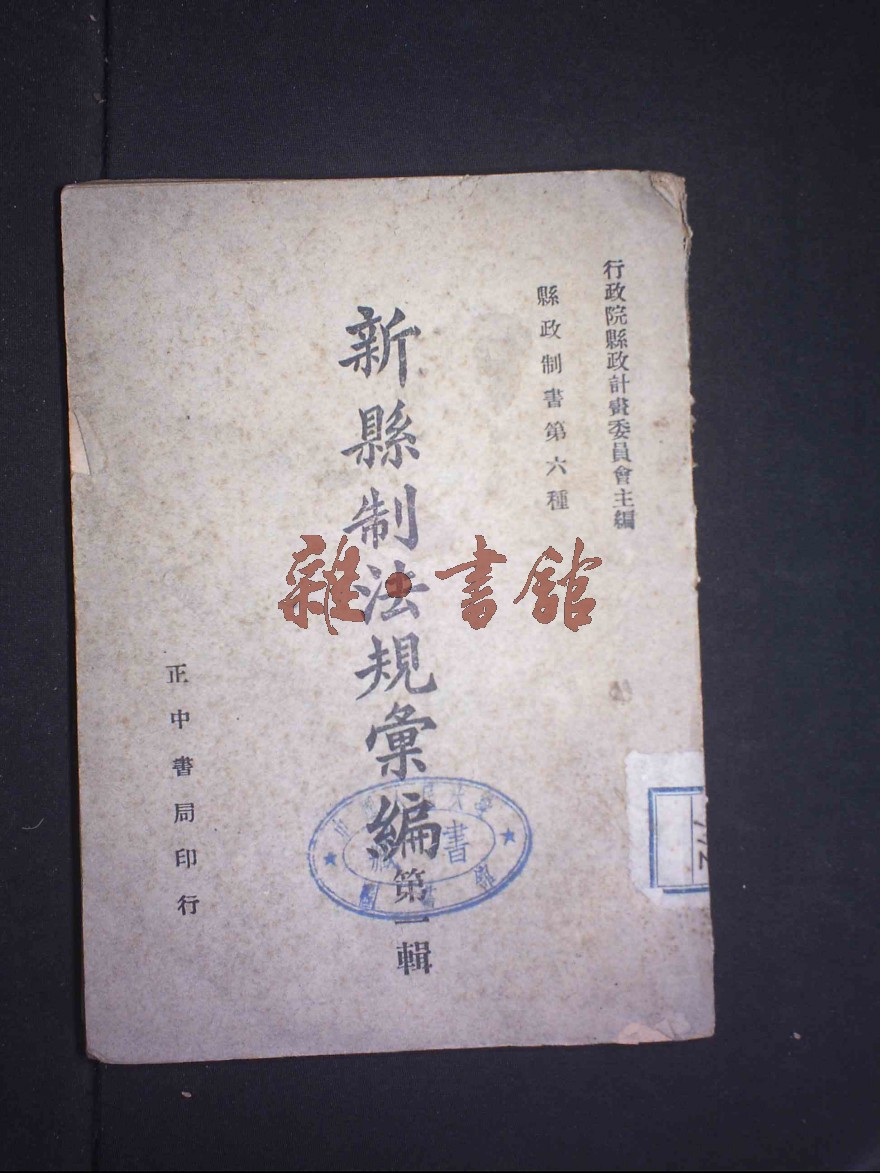 行政院縣政計畫委員會主編
縣政制書第六種
新縣制法規彙編
第一輯
正中書局印行
雜·書館
書